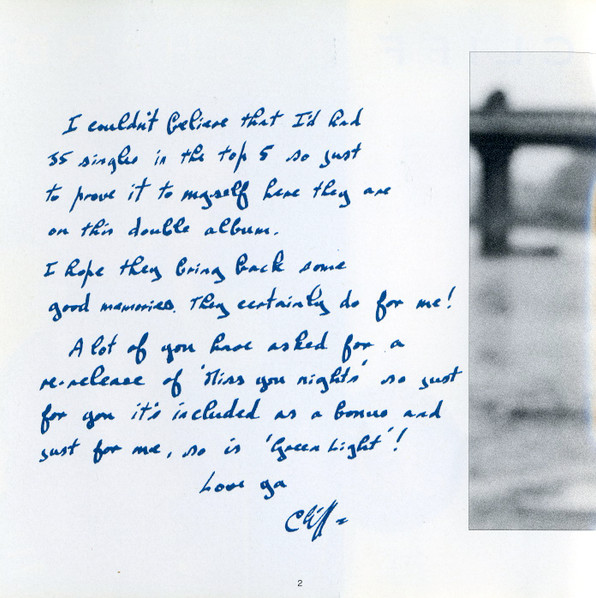 I couldn't believe that I'd had
35 singles in the top 5 so just
to prove it to myself here they are
on this double album.
I hope they bring back some
good memories. They certainly do for me!
A lot of you have asked for a
re-release of 'Miss you nights' so just
for you it's included as a bonus and
just for me, so is 'Green Light'!
Love ya
Cliff
2